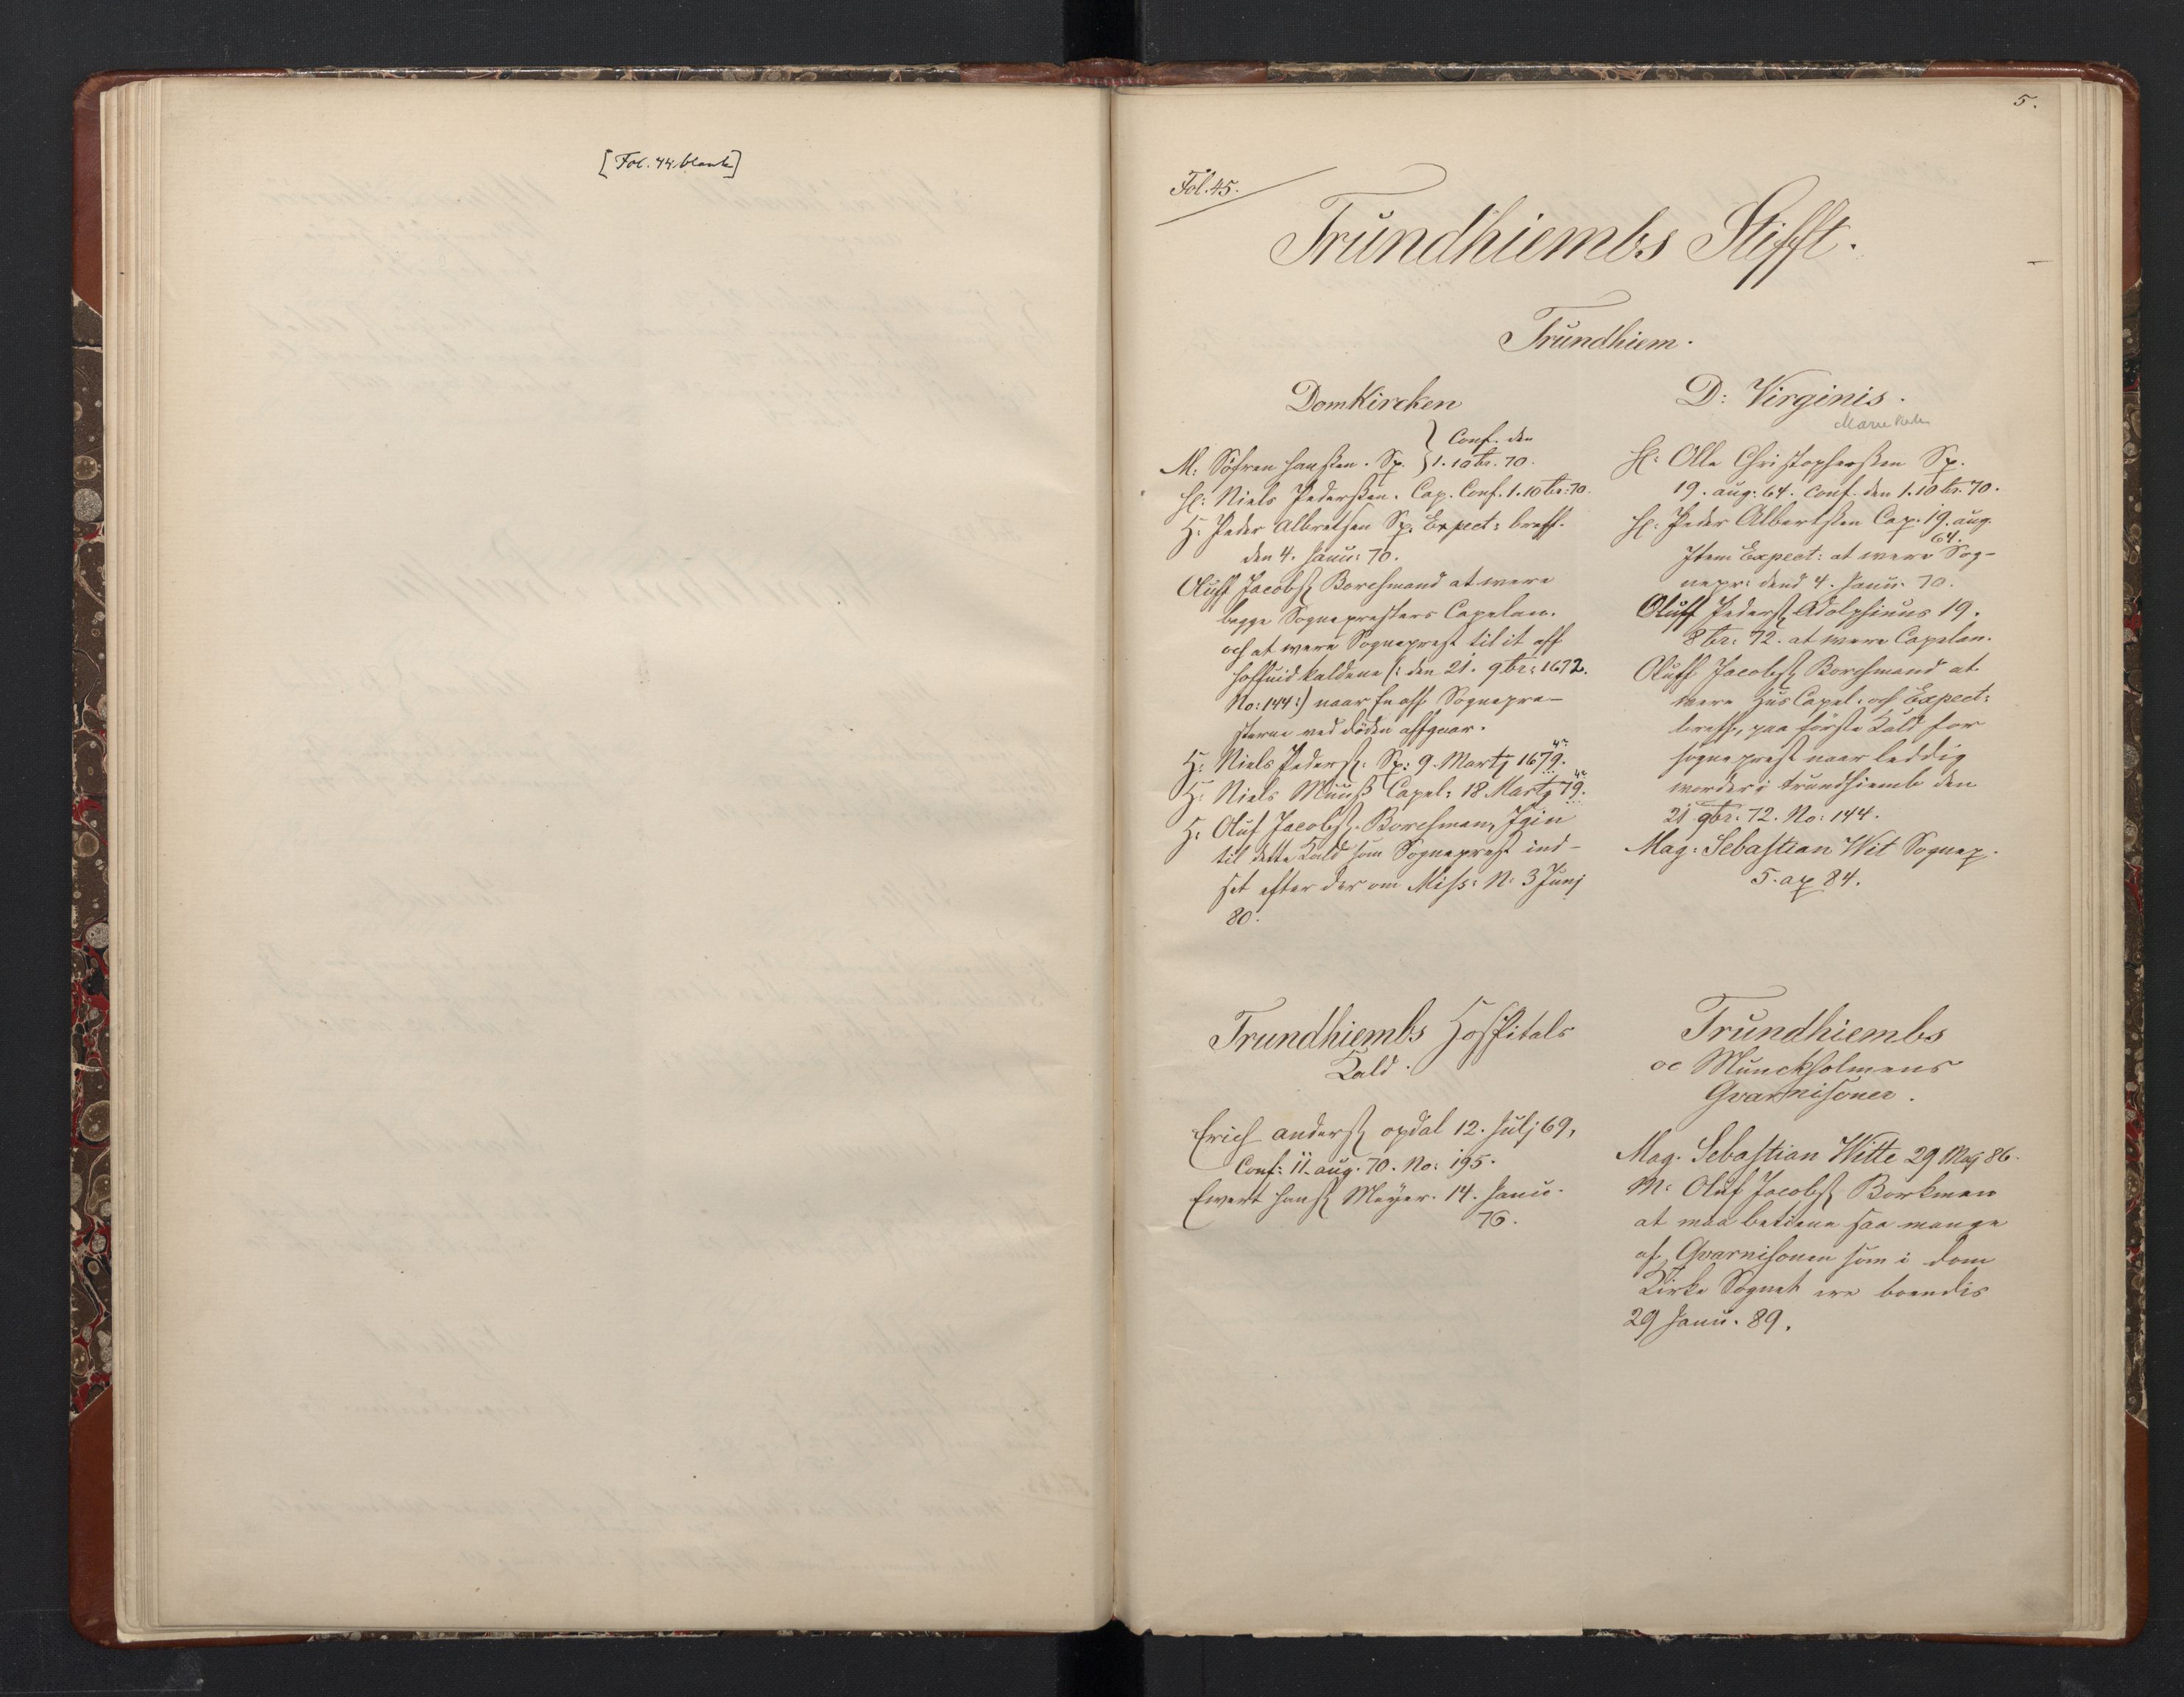 [Fol. 44 blank]
5.
Fol. 45.
Trundhiembs Stifft.
Trundhiem.
DomKircken
M: Söfren Hanssen. Sp. } Conf. den
1. 10br. 70.
H: Niels Pederssen. Cap. Conf. 1. 10br: 70.
H: Peder Albretsen Sp. Expect: breff.
den 4. Janu: 70.
Oluff Jacobss Borchmand at were
begge Sognepresters Capelan.
och at were Sogneprest til it aff
hoffuid kaldene (: den 21. 9br: 1672.
No: 144:) naar en aff Sognepre-
sterne ved döden affgaar.
H: Niels Pederss: Sp: 9. Martj 1679.
H: Niels Muuss Capel: 18 Martj 79.
H: Oluf Jacobss. Borchman, Igien
til dette Kald som Sogneprest ind-
set efter der om Miss: N: 3 Junj
80.
D: Virginis.
Marie Kirke
H: Olle Christopherssen Sp.
19. aug: 64. Conf. den 1. 10br. 70.
H: Peder Albertssen Cap. 19. aug.
64.
Item Expect: at were Sog-
nepr: dend 4. Janu: 70.
Oluff Pederss Adolphinus 19.
8br: 72. at were Capelan.
Oluff Jacobss Borchmand at
were Hus Capel. och Expect:
breff, paa förste Kald for
sogneprest naar leddig
worder i Trundhiemb den
21 9br: 72. No: 144.
Mag: Sebastian Wit Sognep.
5. ap 84.
Trundhiembs Hospitals
Kald.
Erich anderss opdal 12. Julj 69,
Conf: 11. aug. 70. No: 195.
Ewert Hanss Meyer. 14. Janu.
76.
Trundhiembs
oc Munckholmens
Gvarnisoner.
Mag. Sebastian Witte 29 Maj 86.
M: Oluf Jacobss Borkman
at maa betiene saa mange
af Gvarnisonen som i dom
Kirke Sognet ere boendis
29 Janu. 89.